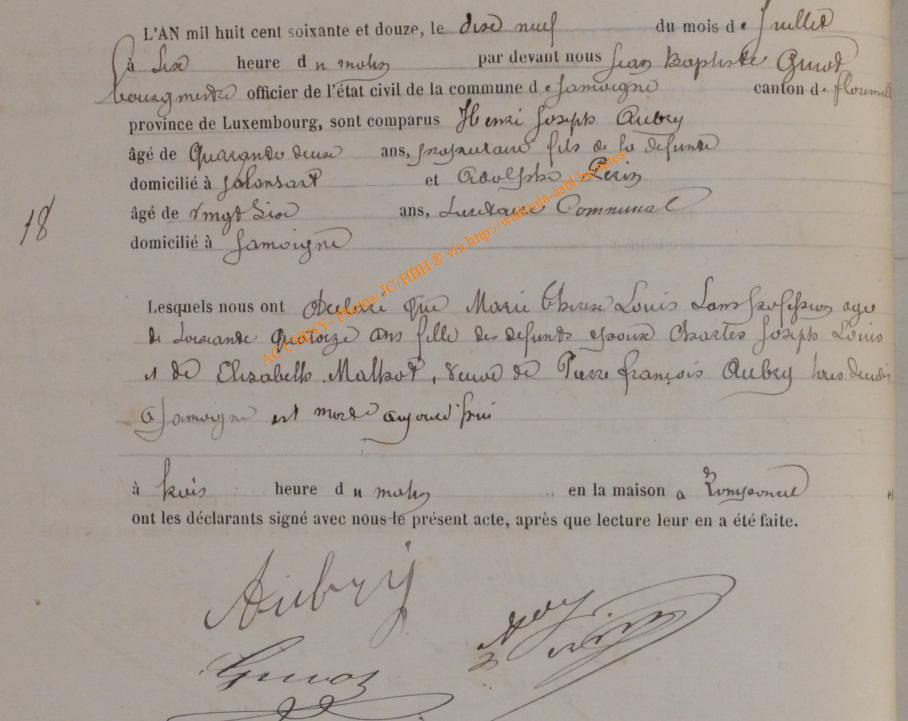 L'AN mil huit cent soixante et douze, le dixe neuf du mois de Juillet
à Six heure du matin par devant nous Jean Baptiste Guiot
bourgmestre officier de l'état civil de la commune de Jamoigne canton de Florenville
province de Luxembourg, sont comparus Henri Joseph Aubry
âgé de Quarante deuxe ans, propriétaire fils de la défunte
domicilié à et Adolphe Perin
âgé de vingt Sixe ans, Communal
domicilié à Jamoigne
18
Lesquels nous ont déclaré que Marie Therese Louis Sans profession agée
de Soixante Quatorze ans fille des défunts époux Charles Joseph Louis
et de Elisabeth, veuve de Pierre françois Aubry
a Jamoigne est morte aujourd'hui
à trois heure du matin en la maison a et
ont les déclarants signé avec nous le présent acte, après que lecture leur en a été faite.
Aubry
Guiot